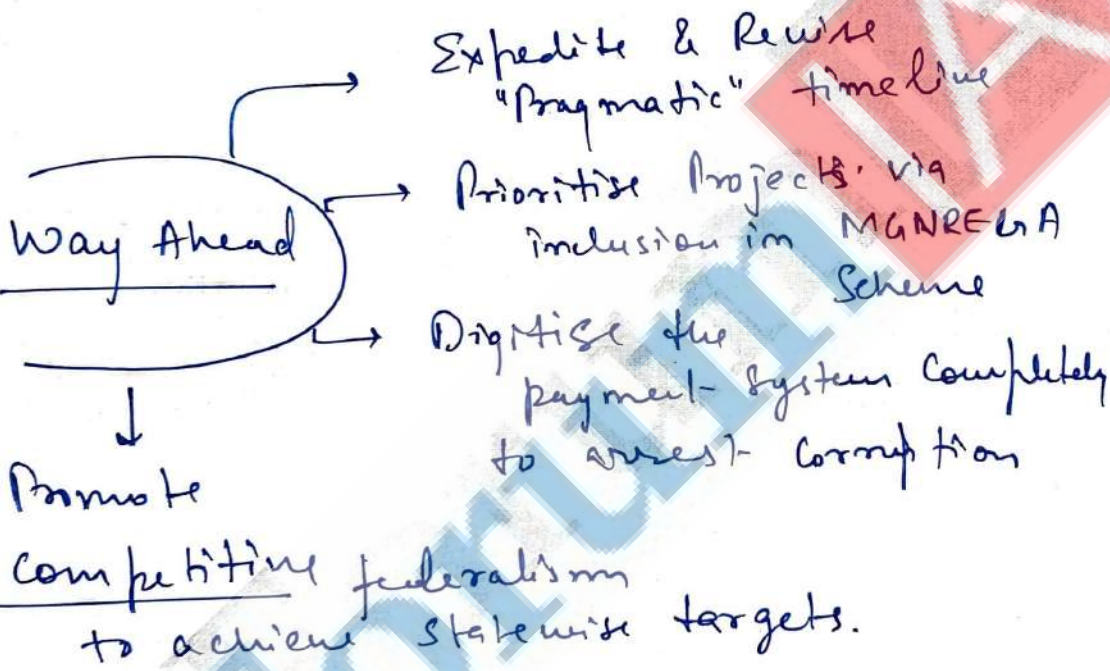 Expedite & Revise
"Pragmatic" timeline
Way Ahead
Prioritise Projects via
inclusion in MGNREGA
Scheme
Digitise the
payment system completely
to arrest corruption
Promote
competitive federalism
to achieve statewise targets.
orum
IA